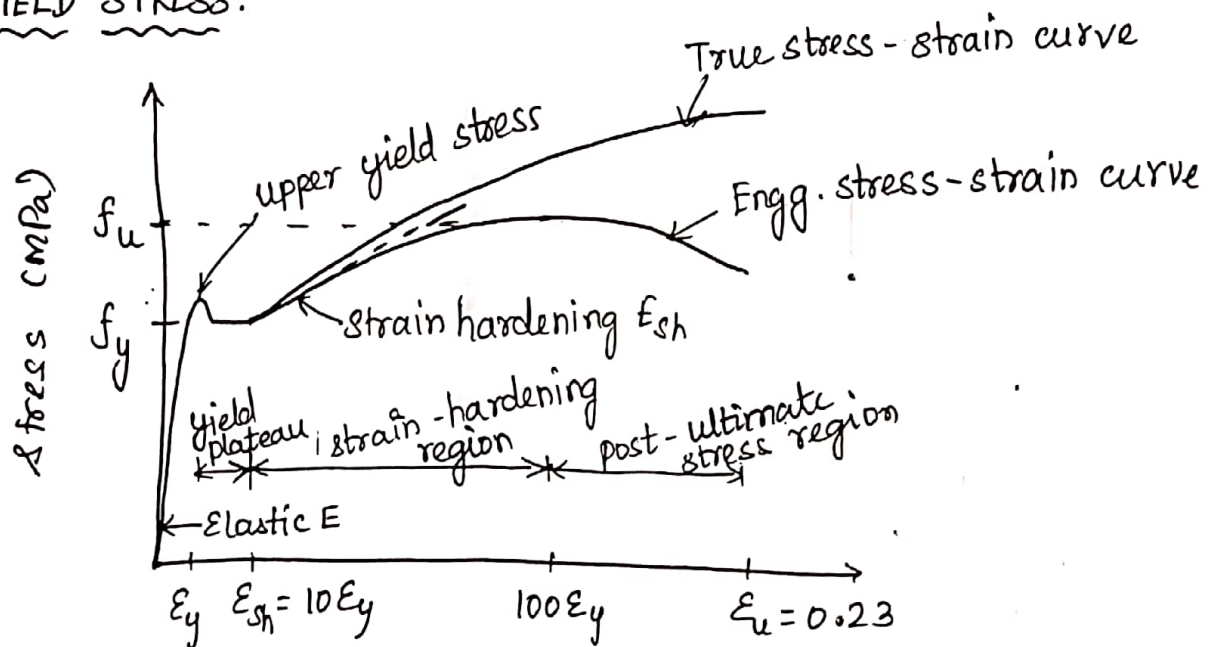 STRESS.
True stress-strain curve
upper yield stress
Engg. stress-strain curve
stress (MPa)
fu
fy
strain hardening Esh
yield plateau
strain-hardening region
post-ultimate stress region
Elastic E
εy
εsh = 10εy
100εy
εu = 0.23